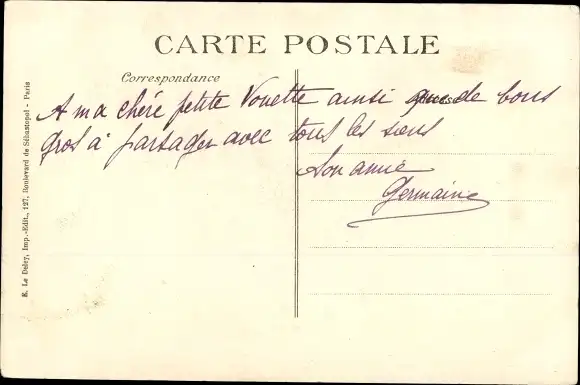 CARTE POSTALE
Correspondance
A ma chère petite Vonette ainsi que de bons
gros à partager avec tous les siens
Son amie
Germaine
E. Le Deley, Imp.-Edit., 127, Boulevard de Sébastopol - Paris